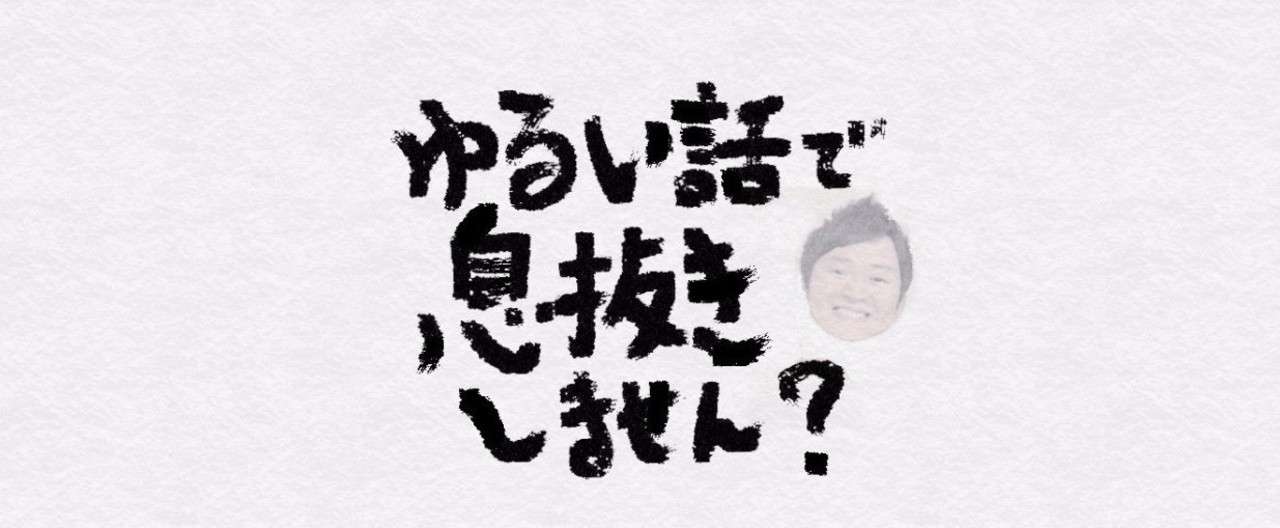 ゆるい話で
息抜き
しません?